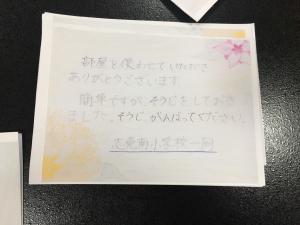 部屋を使わせていただき
ありがとうございます。
簡単ですが、そうじをしておき
ました。そうじ、がんばってください。
南小学校一同